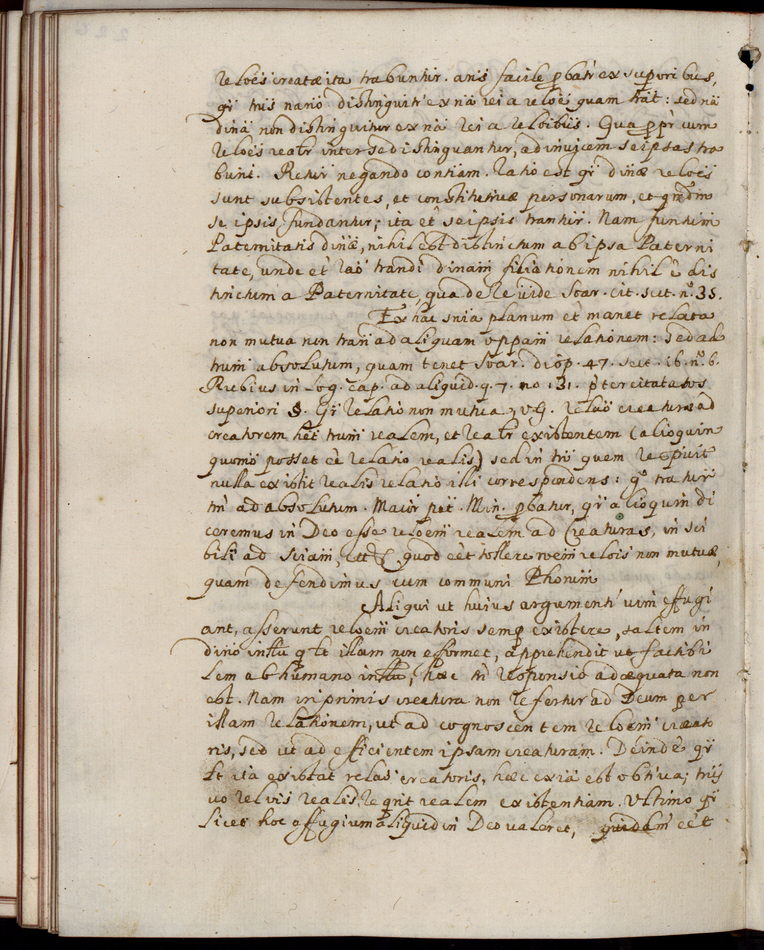 reloēs creatæ ita trabuntur. añs facile pbatr ex superibus,
qr̃ trũs nanō distinguitr ex nã rei a reloē quam trãt: sed nã
dinã non distinguitur ex nã rei a reloibus. Qua ppr cum
reloēs realr inter se distinguantur, ad invicem se ipsas tra
bunt. Retur negando contiam. Ratio est qr̃ dinæ reloēs
sunt subsistentes, et constitutivæ personarum, et quẽdm̃
se ipsis fundantur; ita et se ipsis trantur. Nam funtum
Paternitatis dinæ, nihil est distinctum ab ipsa Paterni
tate, unde et rao trandi dinam filiationem nihil ẽ dis
tinctum a Paternitate, qua de re vide Soar. cit. sect. nº. 35.
Ex hac snia planum et manet relata
non mutua non tran ad aliquam oppam relationem: sed ad
trum absolutum, quam tenet Soar. disp. 47. sect. 16. nº. 6.
Rubius in Log. cap. ad aliquid. q. 7. no 131. pter citatos
superiori §. Qr̃ relatio non mutua, v.G. relao creaturæ ad
creatorem het trum realem, et realr existentem (alioquin
quomõ posset ẽe relatio realis) sed in trõ quem respicit
nulla existit realis relatio illi correspondens: gº tratur
trñ ad absolutum. Maior pet. Min. pbatur, qr̃ alioquin di
ceremus in Deo esse reloem realem ad creaturas, in sci
bili ad sciam, etc quod eẽt tollere rem relois non mutuæ,
quam defendimus cum communi Phorum
Aliqui ut huius argumenti vim effugi
ant, asserunt reloem creatoris semp existere, saltem in
dino intu q lt illam non efformet, apprehendit ut factibi
lem ab humano intu, hæc tñ responsio adæquata non
est. Nam inprimis creatura non refertur ad Deum per
illam relationem, ut ad cognoscentem reloem creato
ris, sed ut ad efficientem ipsam creaturam. Deinde qr̃
lt ita existat relao creatoris, hæc exia est obtiva; trũs
vo relvis realis, reqrit realem existentiam. Ultimo qr̃
licet hoc effugium aliquid in Deo valeret, quidam eẽt